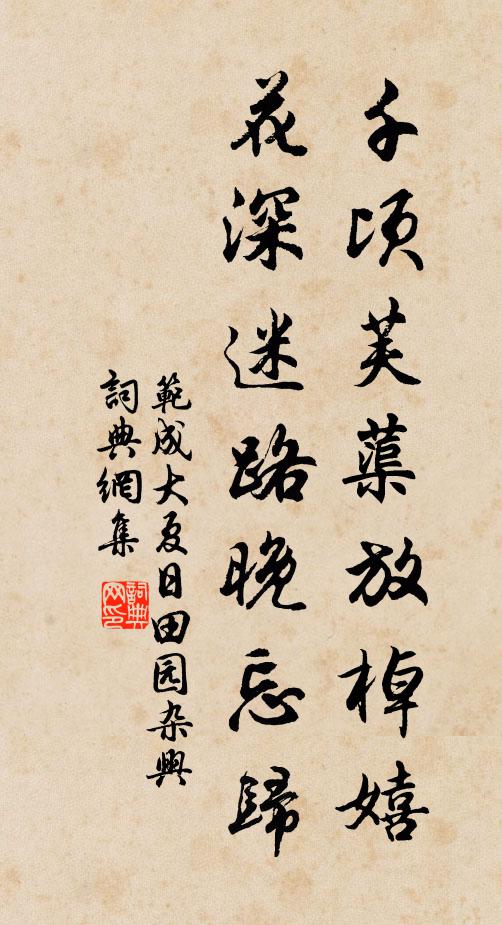 千頃芙蕖放棹嬉
花深迷路晚忘歸
範成大夏日田园杂興
詞典網集
詞典网印